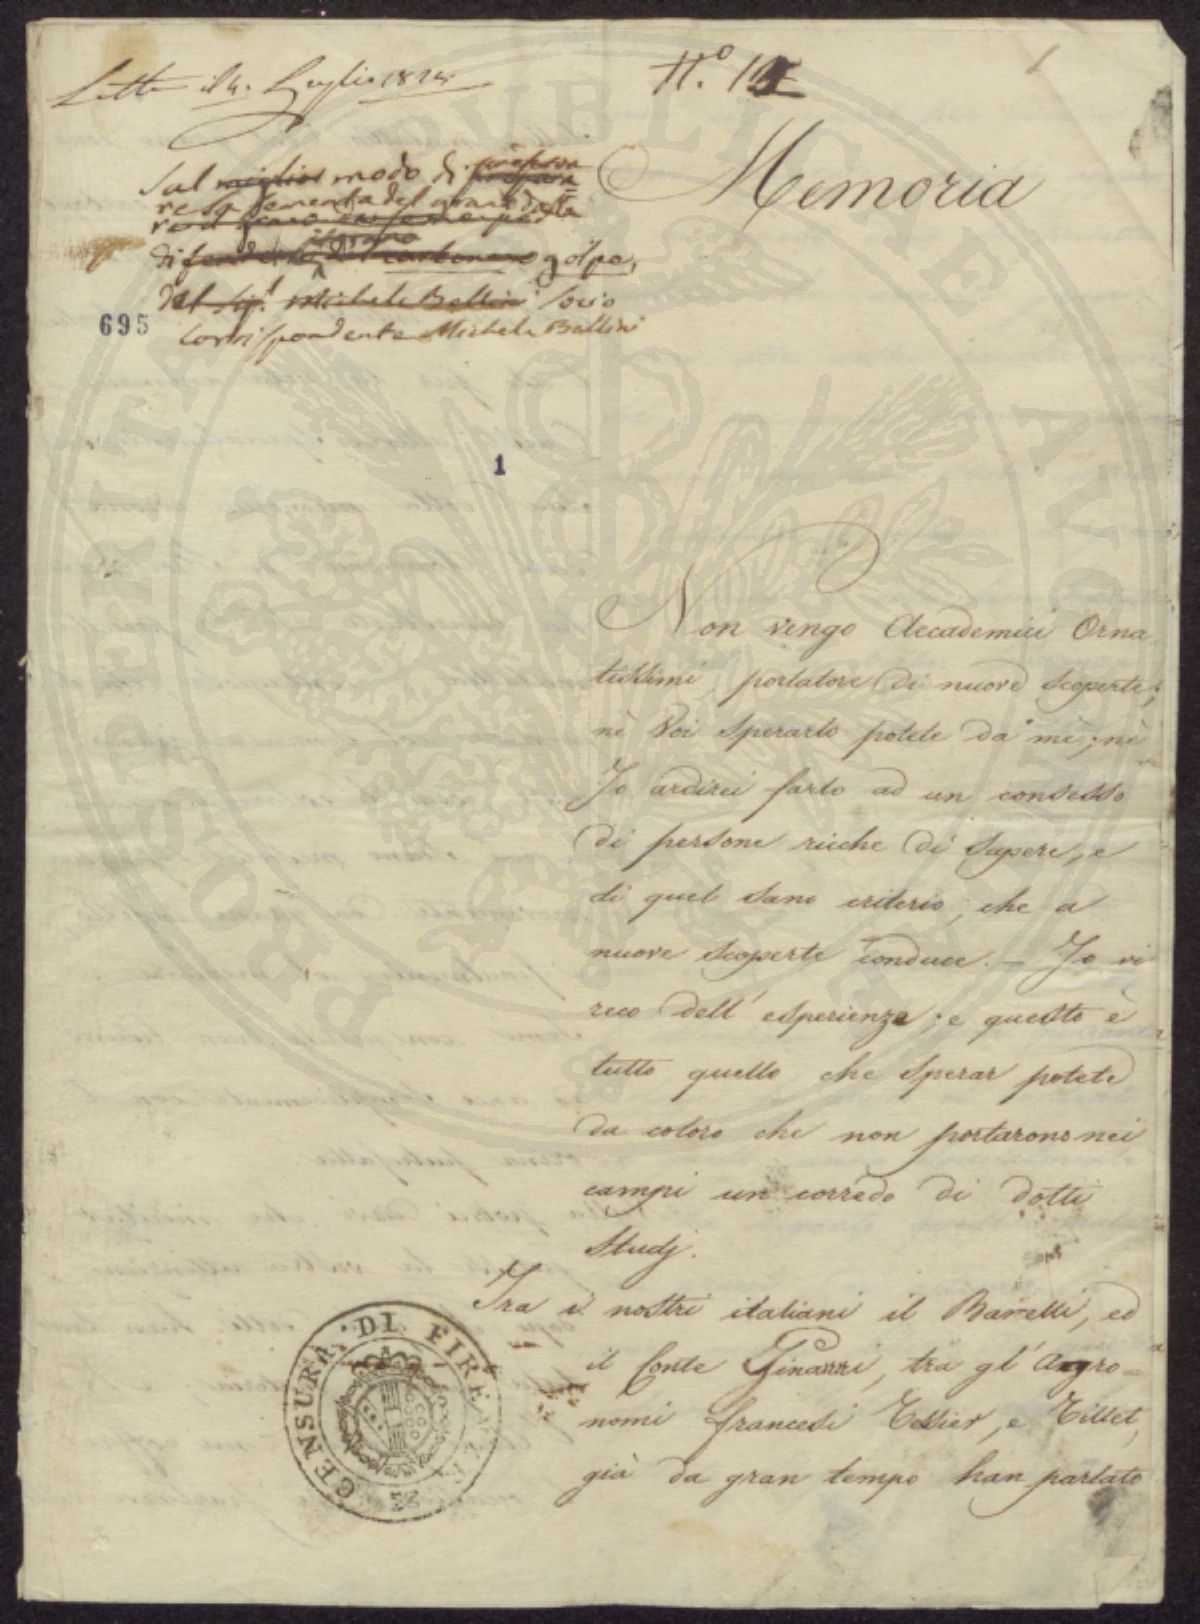 Letta il 4. Luglio 1824.
N.º 12
1
Memoria
Sul miglior modo di preparare
re la sementa del grano dalla
difenderlo il grano dal carbone o golpe,
del Sig.r Michele Bellini Socio
Corrispondente Michele Bellini
695
1
Non vengo Accademici Orna
tissimi, portatore di nuove scoperte;
nè Voi sperarlo potete da mè; nè
Jo ardirei farlo ad un consesso
di persone ricche di sapere, e
di quel sano criterio, che a
nuove scoperte conduce. — Jo vi
reco dell' esperienze; e questo è
tutto quello che sperar potete
da coloro che non portarono nei
campi un corredo di dotti
studj.
Tra i nostri italiani il Barelli, ed
il Conte Ginanni, tra gl' Agro=
nomi francesi Tessier, e Tillet,
già da gran tempo han parlato
CENSURA DI FIRENZE
PROSPERITATI PUBLICAE AUGENDAE